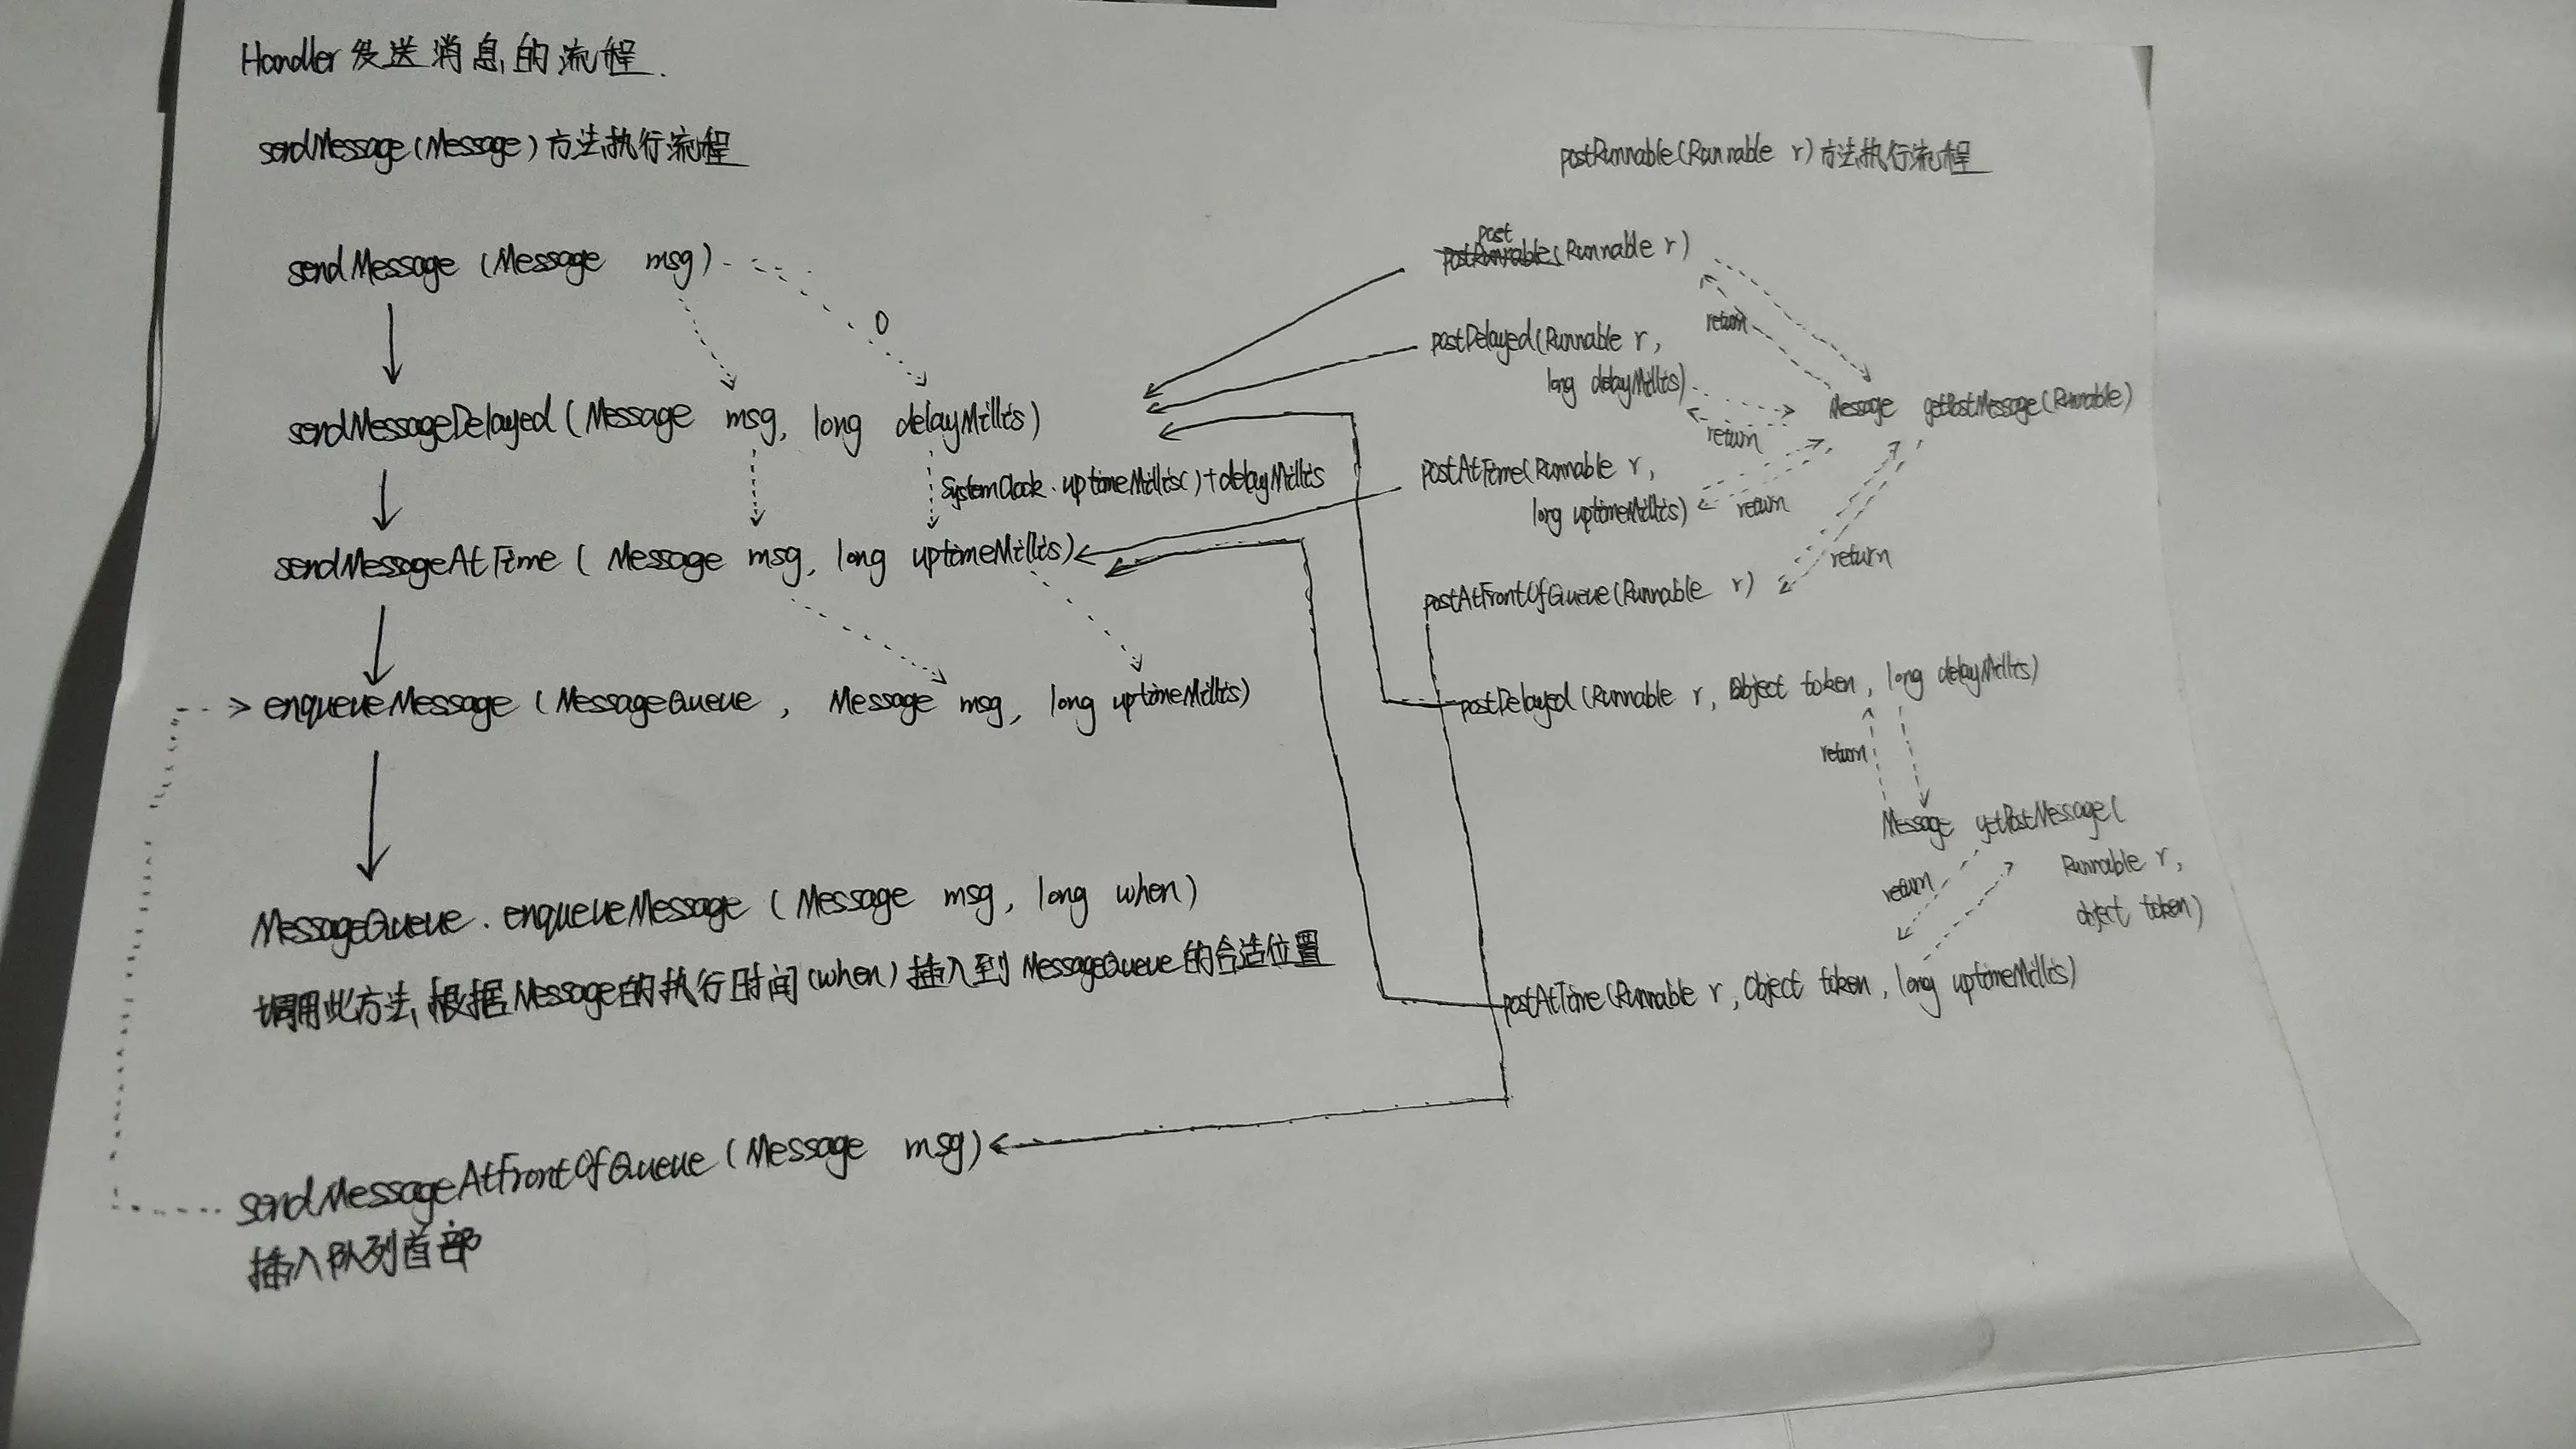 Handler发送消息的流程.
sendMessage(Message)方法执行流程
sendMessage (Message msg)
0
sendMessageDelayed (Message msg, long delayMillis)
SystemClock.uptimeMillis()+delayMillis
sendMessageAtTime ( Message msg, long uptimeMillis)
enqueueMessage (MessageQueue , Message msg, long uptimeMillis)
MessageQueue.enqueueMessage (Message msg, long when)
调用此方法,根据Message的执行时间(when)插入到MessageQueue的合适位置
sendMessageAtFrontOfQueue (Message msg)
插入队列首部
postRunnable(Runnable r)方法执行流程
post
postRunnable(Runnable r)
return
postDelayed(Runnable r,
long delayMillis)
return
Message getPostMessage(Runnable)
postAtTime(Runnable r,
long uptimeMillis)
return
return
postAtFrontOfQueue(Runnable r)
postDelayed (Runnable r, Object token, long delayMillis)
return
Message getPostMessage(
Runnable r,
object token)
return
postAtTime(Runnable r, Object token, long uptimeMillis)